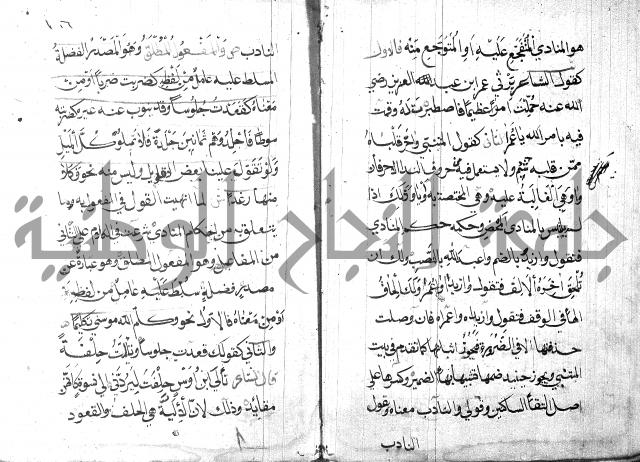 هو المنادى المتفجع عليه او المتوجع منه فالاول
كقول الشاعر يرثي عمر ابن عبد العزيز رضي
الله عنه حملت امرا عظيما فاصطبرت له وقمت
فيه بامر الله يا عمرا الثاني كقول المتنبي واحر قلباه
ممن قلبه شبم ولا يستعمل فيه من حروف النداء الا حرفان
وا وهي الغالبة عليه وهي المختصة به ويا وذلك اذا
لم يلتبس بالمنادى المحض وحكمه حكم المنادى
فتقول وا زيد بالضم وا عبد الله بالنصب ولك ان
تلحق اخره الالف فتقول وا زيدا وا عمرا ولك الحاق
الهاء في الوقف فتقول وا زيداه وا عمراه فان وصلت
حذفتها الا في الضرورة فيجوز اثباتها كما تقدم في بيت
المتنبي ويجوز حينئذ ضمها تشبيها بهاء الضمير وكسرها على
اصل التقاء الساكنين وقولي والنادب معناه ويقول
النادب
١٠٦
النادب ص والمفعول المطلق وهو المصدر الفضلة
المسلط عليه عامل من لفظه كضربت ضربا او من
معناه كقعدت جلوسا وقد ينوب عنه غيره كضربته
سوطا فاجلدوهم ثمانين جلدة فلا تميلوا كل الميل
ولو تقول علينا بعض الاقاويل وليس منه نحو وكلا
منها رغدا ش لما انهيت القول في المفعول به وما
يتعلق به من احكام المنادى شرعت في الكلام على الثاني
من المفاعيل وهو المفعول المطلق وهو عبارة عن
مصدر فضلة تسلط عليه عامل من لفظه
او من معناه فالاول نحو وكلم الله موسى تكليما
والثاني كقولك قعدت جلوسا وتألت حلفة
قال الشاعر تألى ابن اوس حلفة ليردني الى نسوة كانهن
مفائد وذلك لان الالية هي الحلف والقعود
جامعة النجاح الوطنية